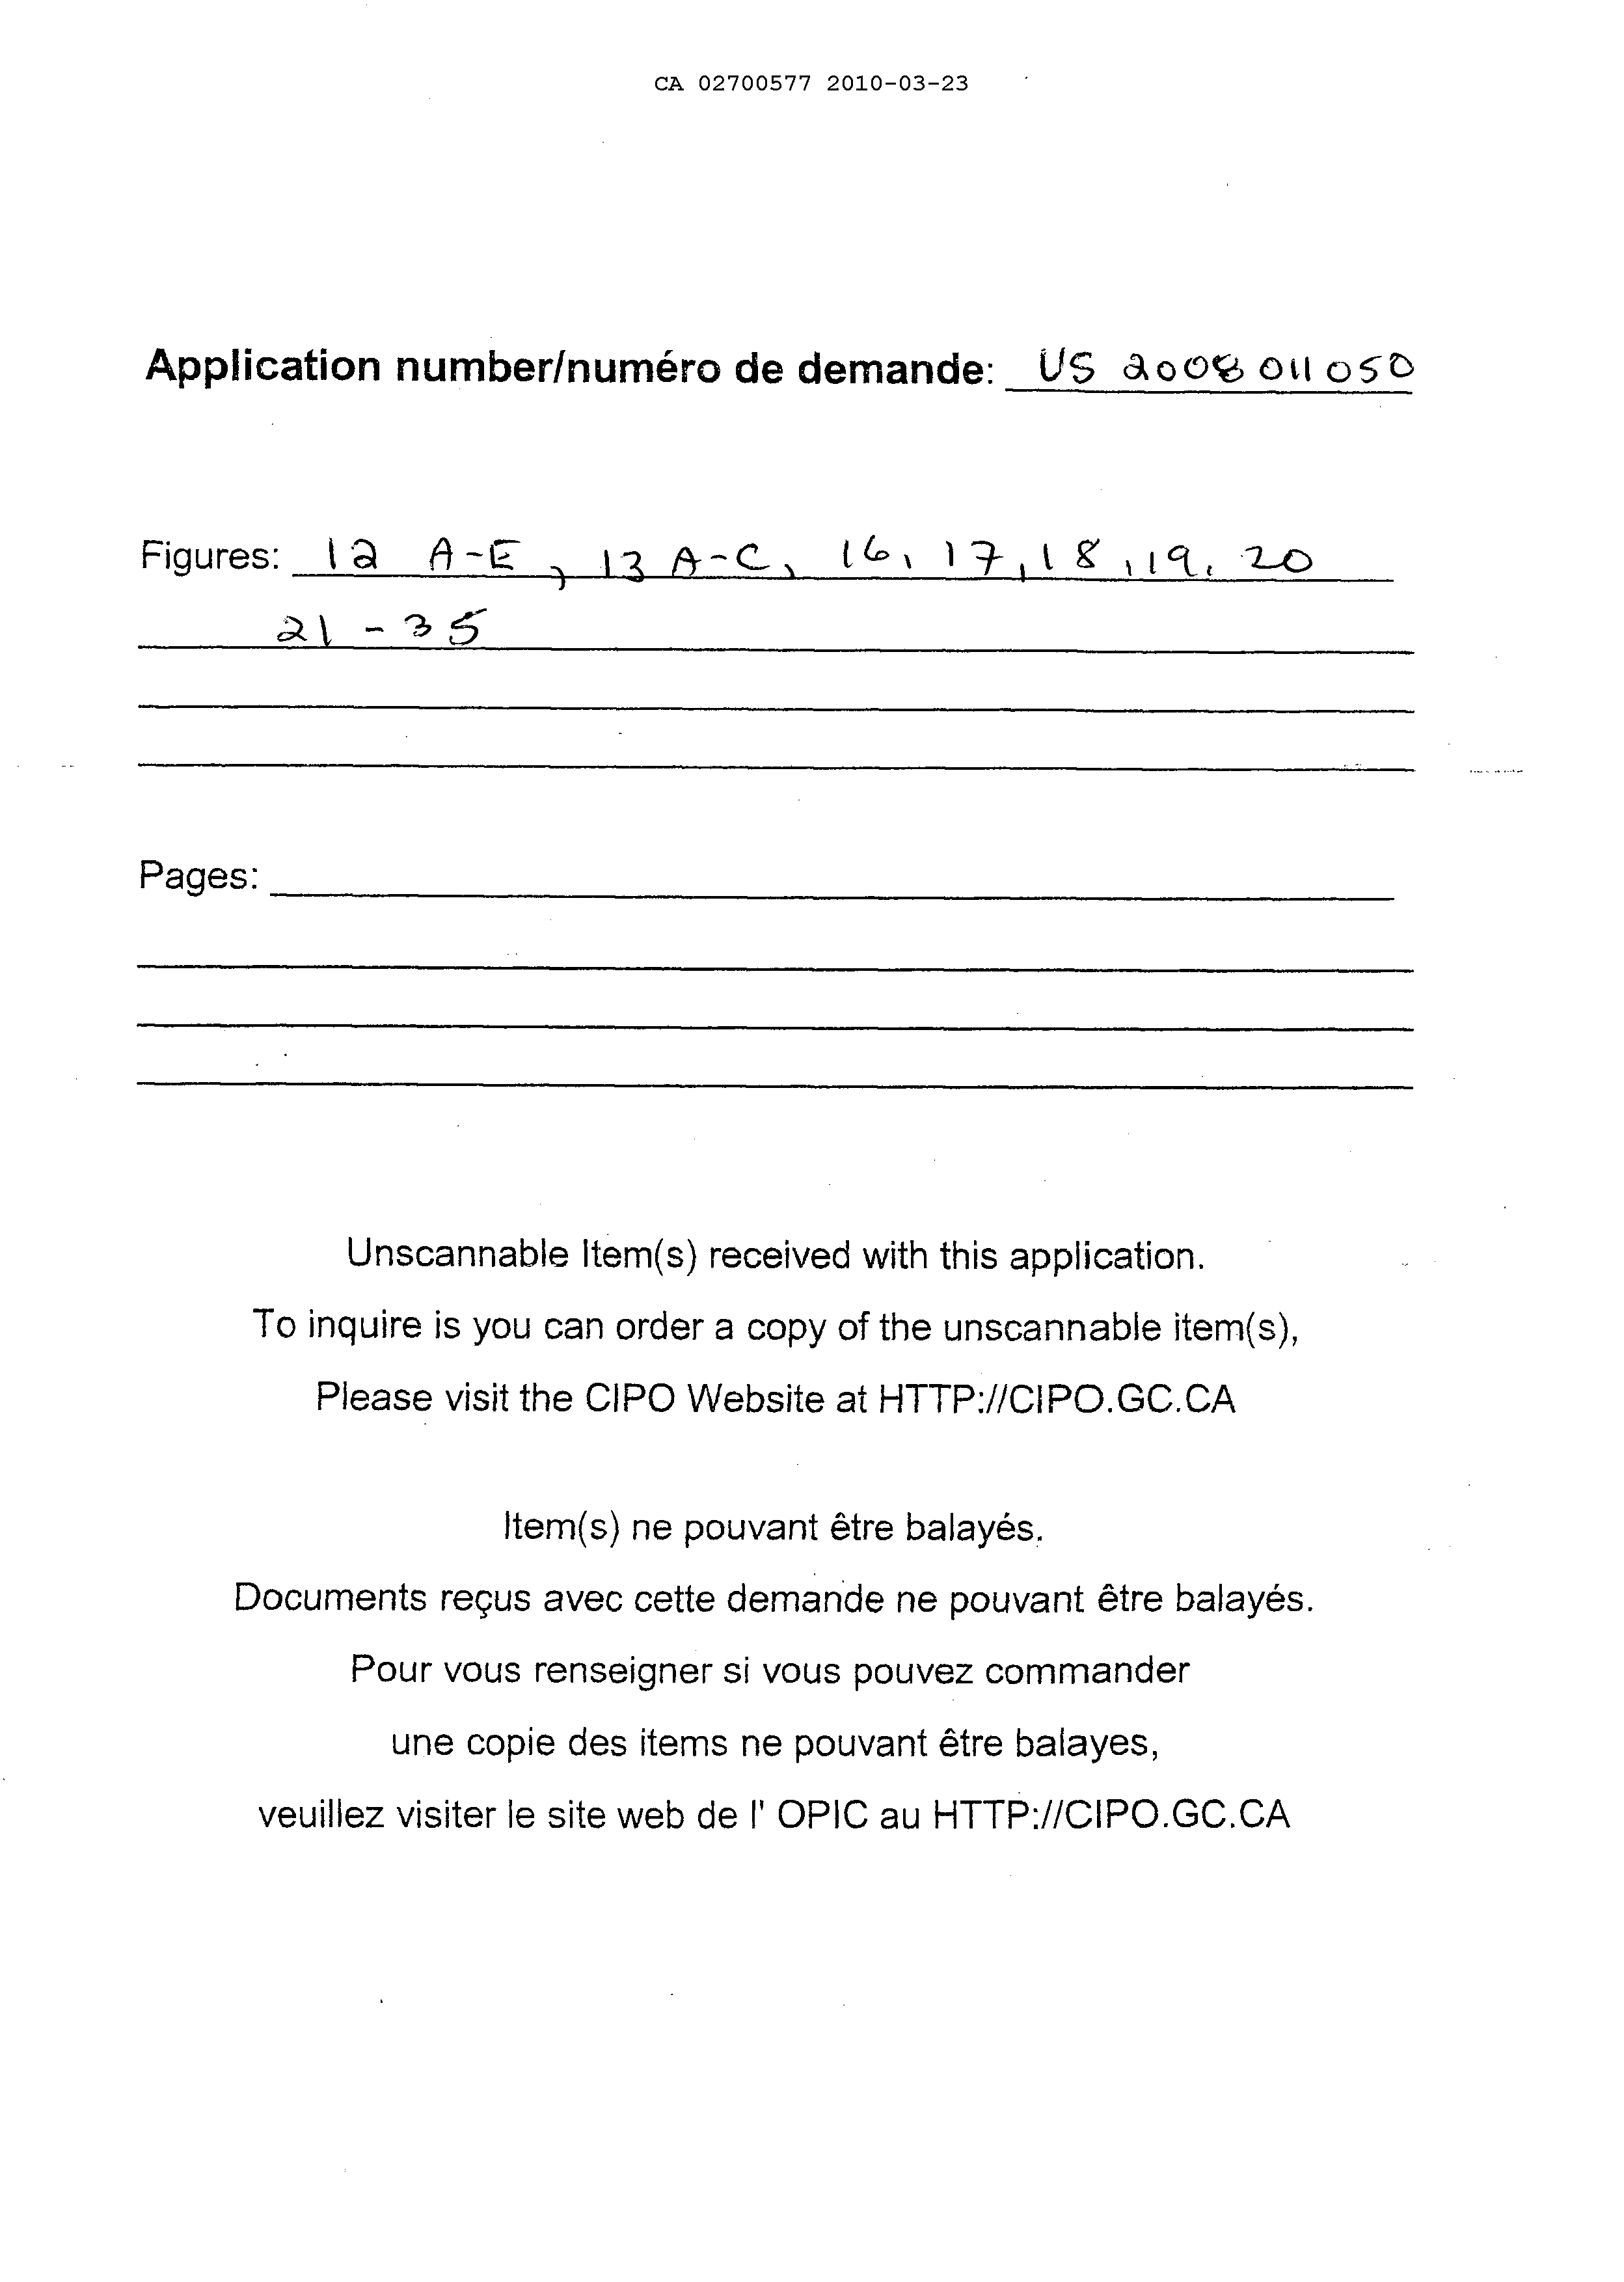 CA 02700577 2010-03-23
Application number/numéro de demande: US 2008 011 050
Figures: 12 A-E, 13 A-C, 16, 17, 18, 19, 20
21 - 35
Pages:
Unscannable Item(s) received with this application.
To inquire is you can order a copy of the unscannable item(s),
Please visit the CIPO Website at HTTP://CIPO.GC.CA
Item(s) ne pouvant être balayés.
Documents reçus avec cette demande ne pouvant être balayés.
Pour vous renseigner si vous pouvez commander
une copie des items ne pouvant être balayes,
veuillez visiter le site web de l' OPIC au HTTP://CIPO.GC.CA